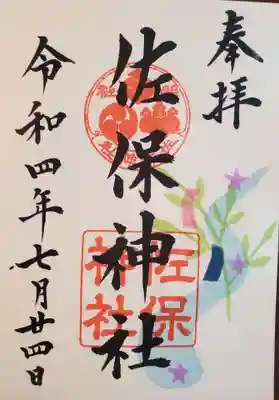 奉拝
佐保神社
令和四年七月廿四日
佐保
神社